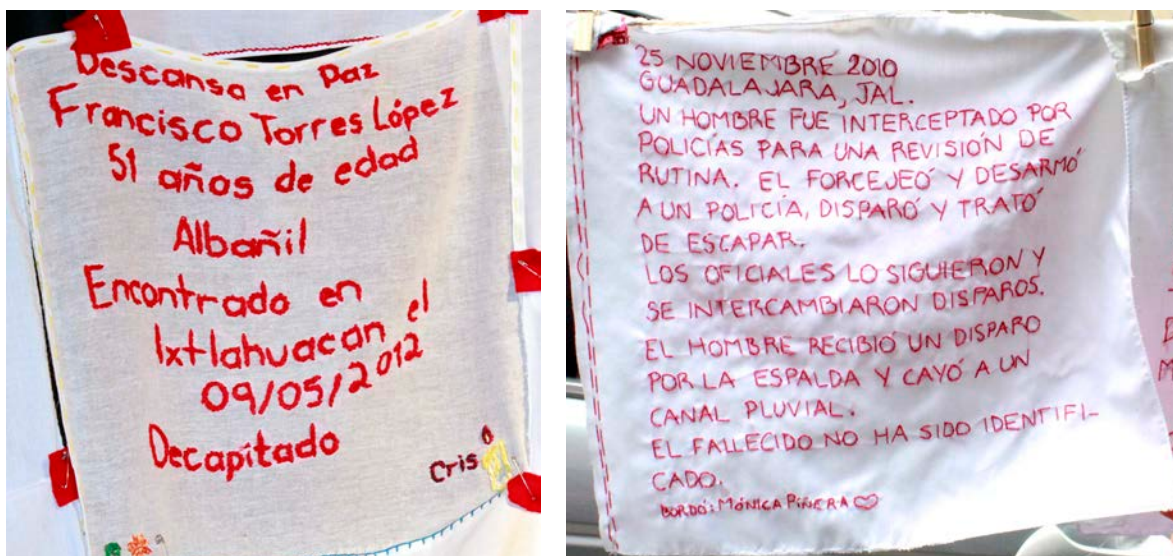 Descansa en Paz
Francisco Torres López
51 años de edad
Albañil
Encontrado en
Ixtlahuacan el
09/05/2012
Decapitado
Cris
25 NOVIEMBRE 2010
GUADALAJARA, JAL.
UN HOMBRE FUE INTERCEPTADO POR
POLICÍAS PARA UNA REVISIÓN DE
RUTINA. EL FORCEJEÓ Y DESARMÓ
A UN POLICÍA, DISPARÓ Y TRATÓ
DE ESCAPAR.
LOS OFICIALES LO SIGUIERON Y
SE INTERCAMBIARON DISPAROS.
EL HOMBRE RECIBIÓ UN DISPARO
POR LA ESPALDA Y CAYÓ A UN
CANAL PLUVIAL.
EL FALLECIDO NO HA SIDO IDENTIFI-
CADO.
BORDÓ: MÓNICA PIÑERA